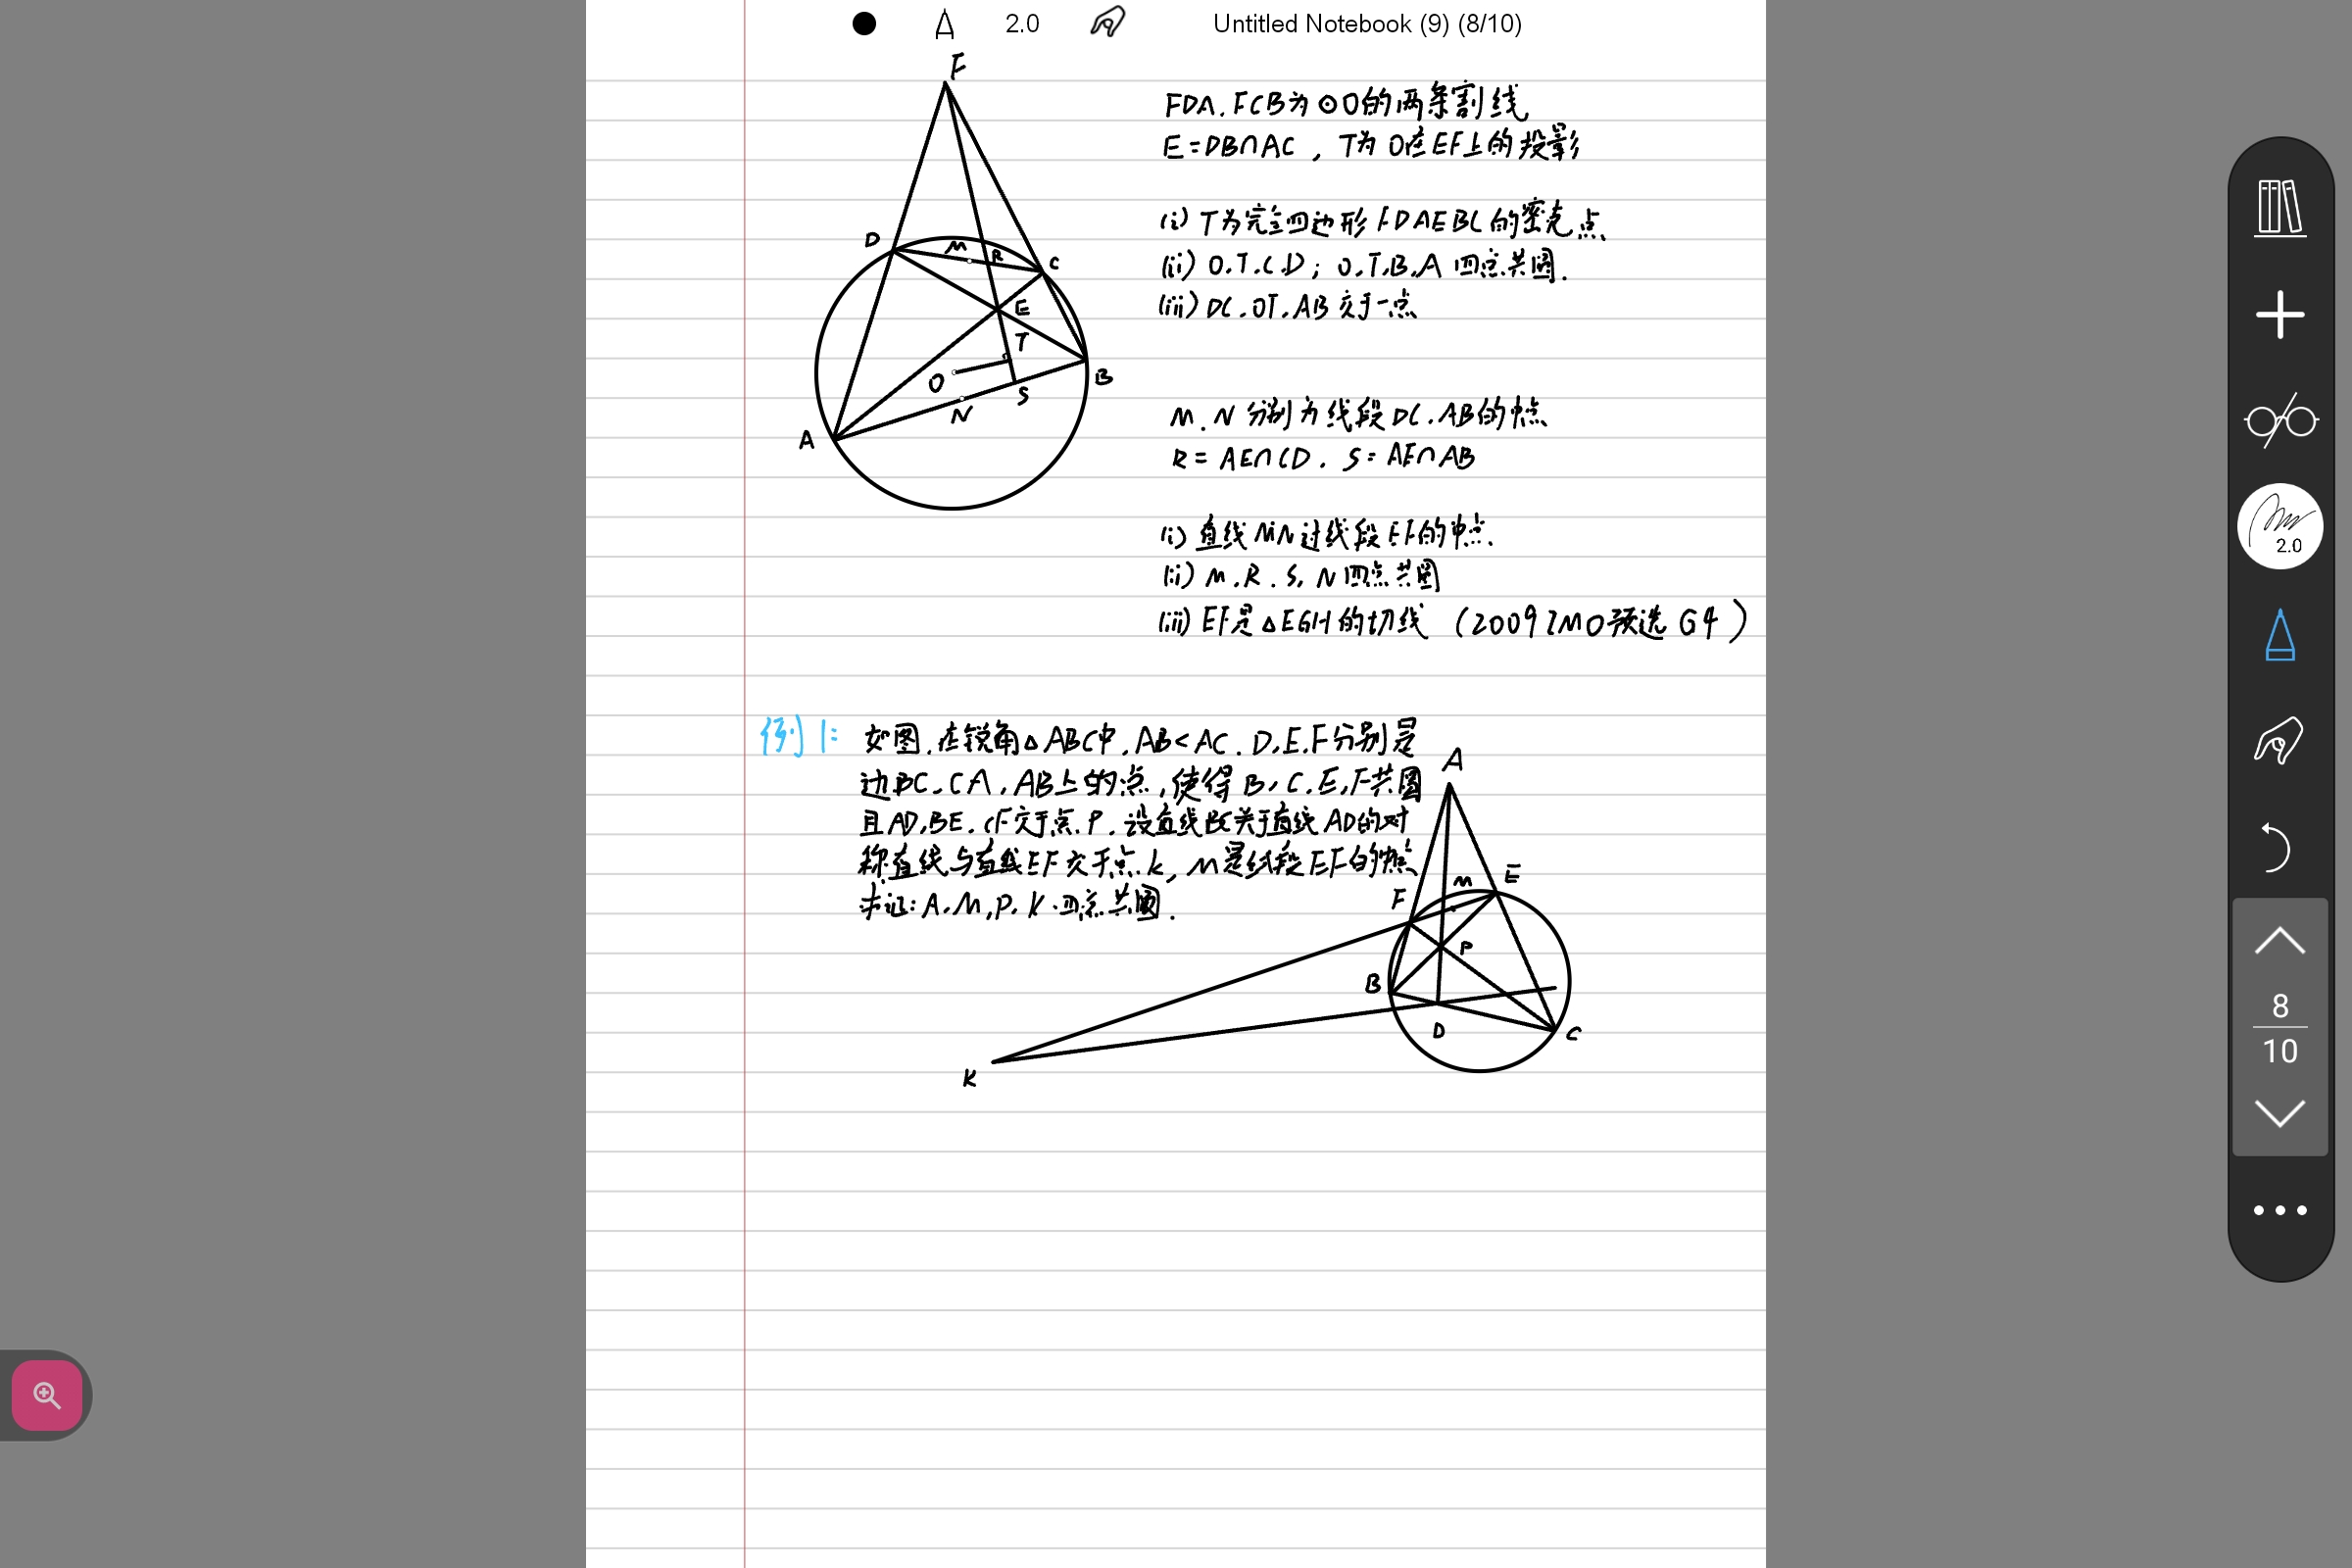 2.0 Untitled Notebook (9) (8/10)
F
FDA.FCB为⊙O的两条割线
E=DB∩AC,T为O在EF上的投影
(i)T为完全四边形FDAEBC的密克点
(ii)O.T.C.D;O.T.B.A四点共圆.
(iii)DC.OT.AB交于一点
D M R C
E
T
O S B
N
A
M.N分别为线段DC.AB的中点
R=AE∩CD.S=AE∩AB
(i)直线MN过线段EF的中点.
(ii)M.R.S.N四点共圆
(iii)EF是△EGH的切线(2009IMO预选G4)
例1:如图.在锐角△ABC中.AB<AC.D.E.F分别是
边BC、CA、AB上的点,使得B、C、E、F共圆
且AD.BE.CF交于点P.设直线BC关于直线AD的对
称直线与直线EF交于点K,M是线段EF的中点
求证:A.M.P.K.四点共圆.
A
M E
F
P
B
D C
K
2.0
8
10